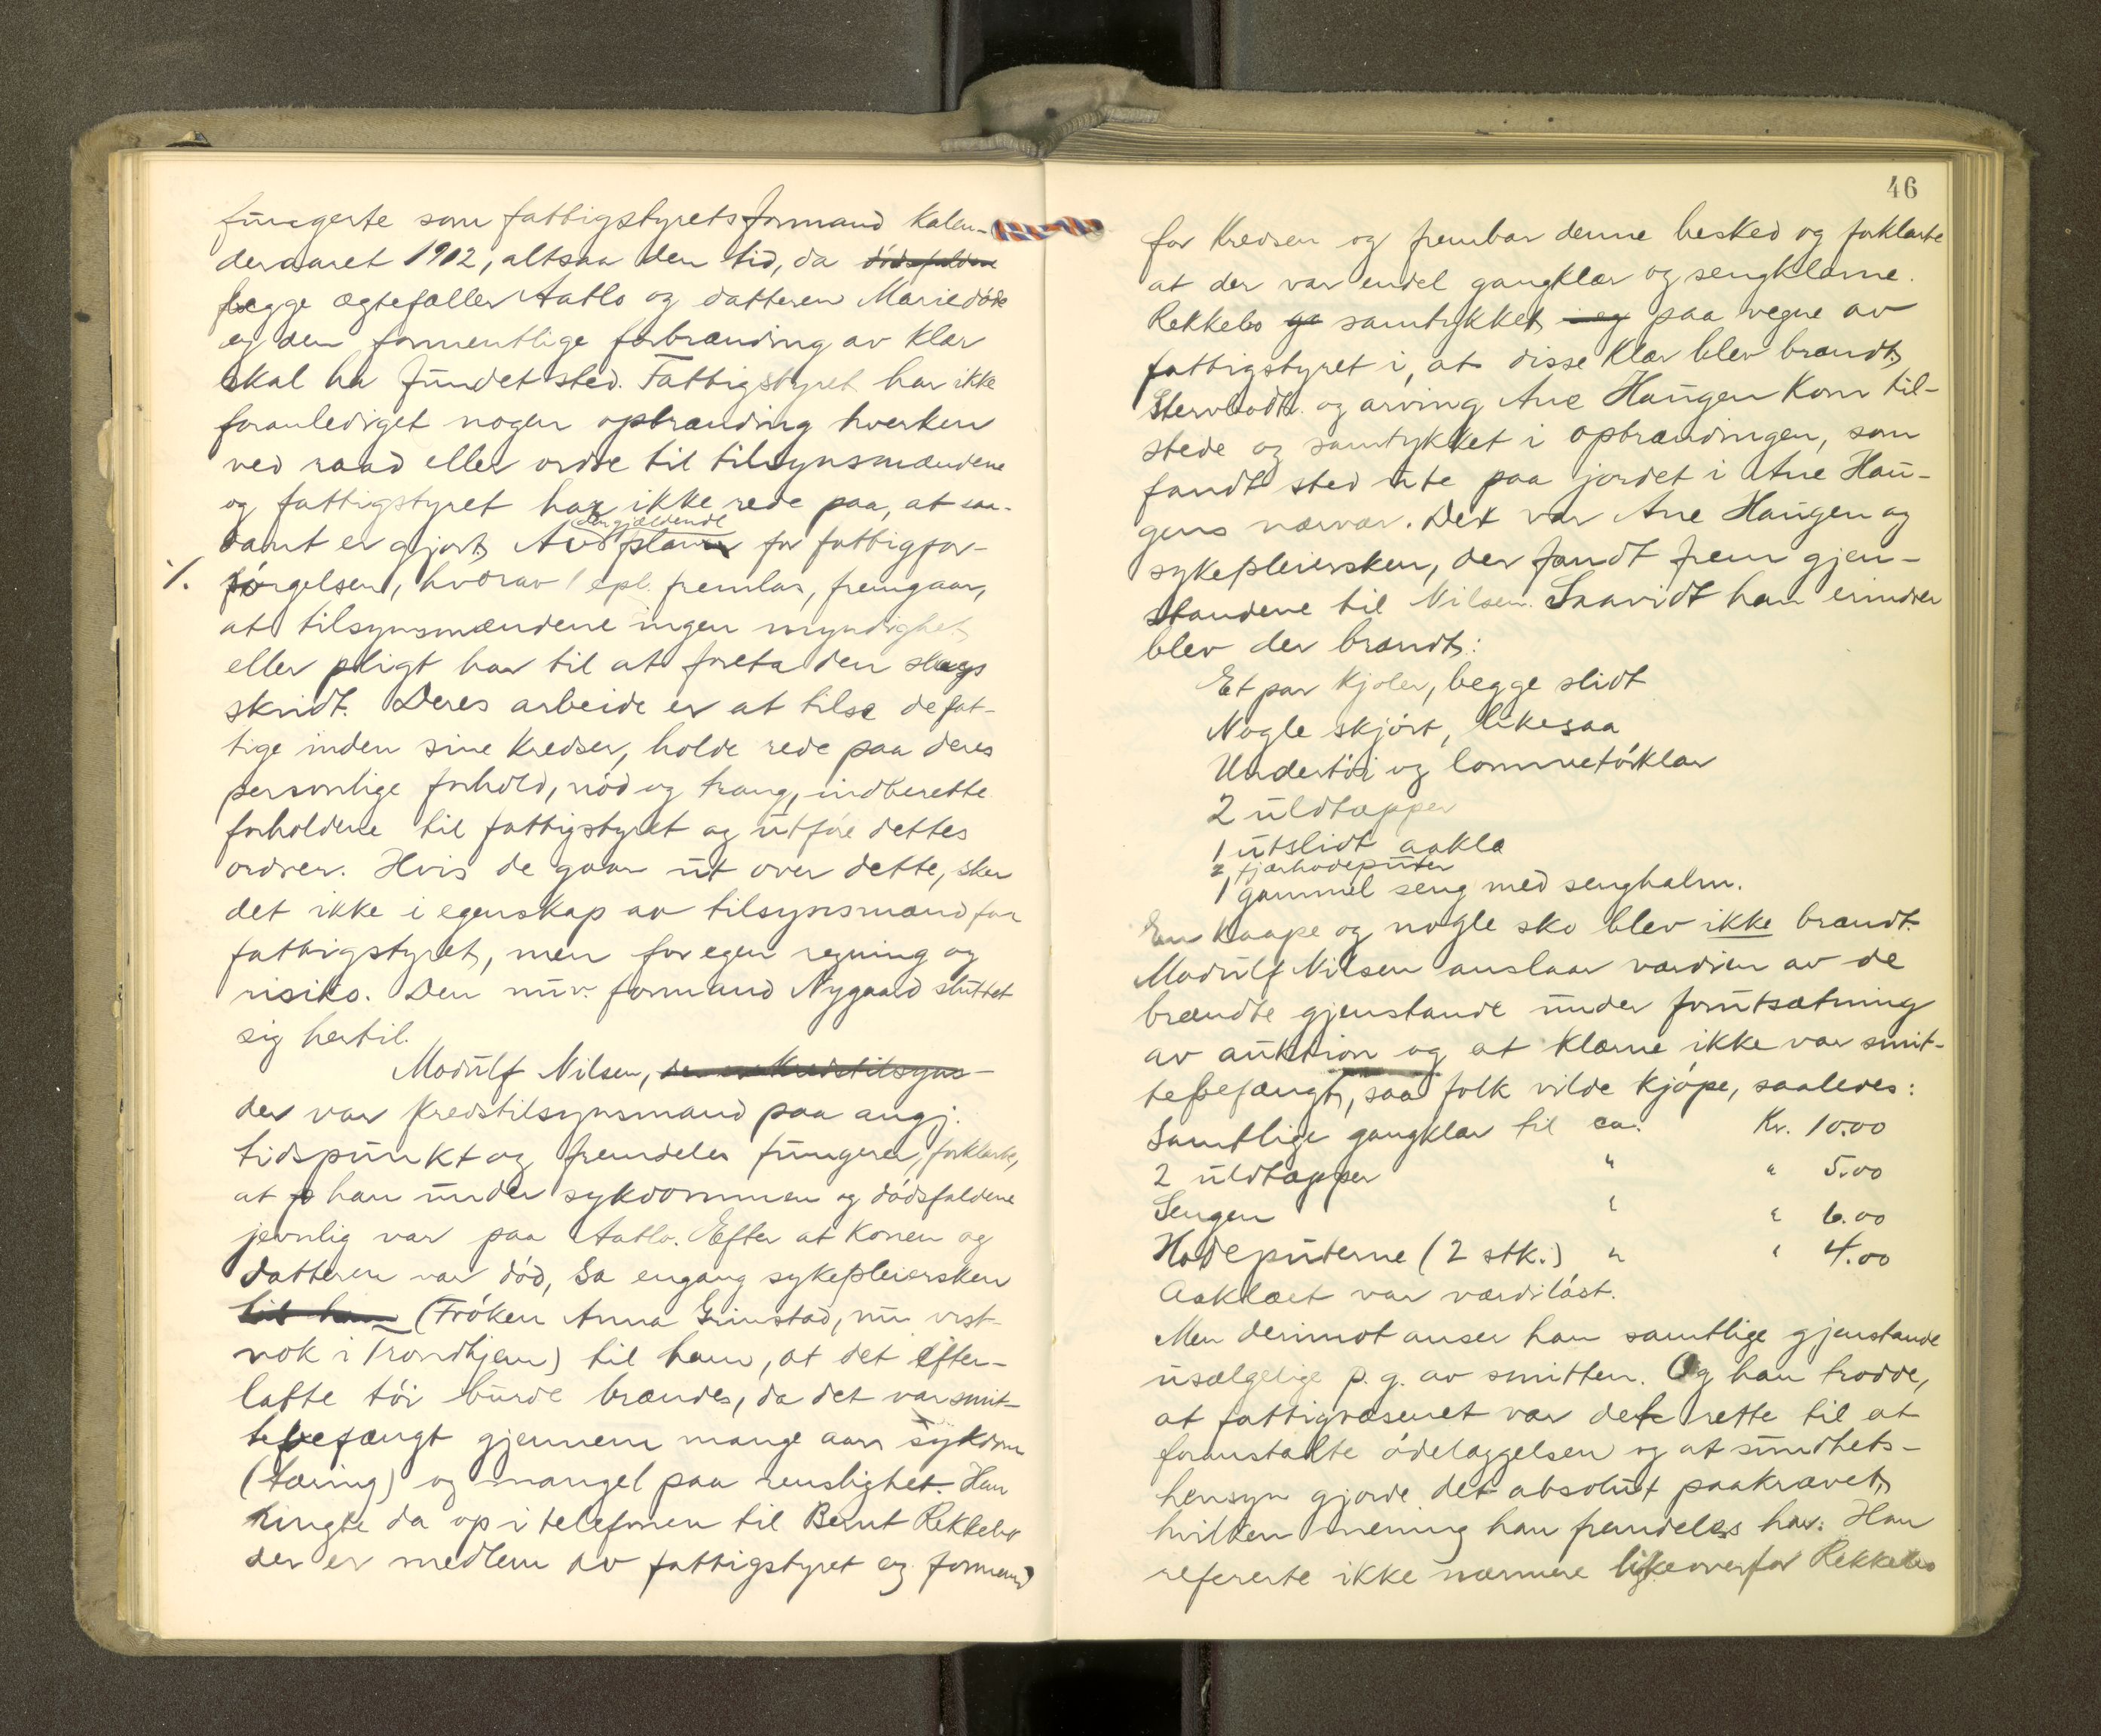 fungerte som fattigstyretsformand kalen-
deraaret 1912, altsaa den tid, da dödsfaldene
begge ægtefæller Aatlo og datteren Marie döde
og den formentlige forbrænding av klær
skal ha fundet sted. Fattigstyret har ikke
foranlediget nogen opbrænding hverken
ved raad eller ordre til tilsynsmændene
og fattigstyret har ikke rede paa, at saa-
dant er gjort. Av
den gjældende
plan for fattigfor-
·/. sörgelsen, hvorav 1 epl. fremlas, fremgaar,
at tilsynsmændene ingen myndighet
eller pligt har til at foreta den slags
skridt. Deres arbeide er at tilse de fat-
tige inden sine kredser, holde rede paa deres
personlige forhold, nöd og trang, indberette
forholdene til fattigstyret og utföre dettes
ordrer. Hvis de gaar ut over dette, sker
det ikke i egenskap av tilsynsmænd for
fattigstyret, men for egen regning og
risiko. Den nuv. formand Nygaard sluttet
sig hertil.
Modulf Nilsen, der er kredstilsyns-
der var kredstilsynsmand paa angj.
tidspunkt og fremdeles fungerer, forklarte,
at han under sykdommen og dödsfaldene
jevnlig var paa Aatlo. Efter at konen og
datteren var död, sa engang sykepleiersken
til ham (Fröken Anna Grinstad, nu vist-
nok i Trondhjem) til ham, at det efter-
latte töi burde brændes, da det var smit-
tebefængt gjennem mange aars sykdom
(tæring) og mangel paa renslighet. Han
ringte da op i telefonen til Bernt Rekkebo
der er medlem av fattigstyret og formand
46
for kredsen og frembar denne besked og forklarte
at der var endel gangklær og sengklærne.
Rekkebo ga samtykket og paa vegne av
fattigstyret i, at disse klær blev brændt.
Stervbodts. og arving Ane Haugen kom til-
stede og samtykket i opbrændingen, som
fandt sted ute paa jordet i Ane Hau-
gens nærvær. Det var Ane Haugen og
sykepleiersken, der fandt frem gjen-
standene til Nilsen. Saavidt han erindrer
blev der brændt:
Et par kjoler, begge slidt
Nogle skjört, likesaa
Undertöi og lommetörklær
2 uldtæpper
1 utslidt aaklæ
2 fjærhodeputer
1 gammel seng med senghalm.
En kaape og nogle sko blev ikke brændt.
Modulf Nilsen anslaar værdien av de
brændte gjenstande under forutsætning
av auktion og at klærne ikke var smit-
tebefængt, saa folk vilde kjöpe, saaledes:
Samtlige gangklær til ca. Kr. 10.00
2 uldtæpper " " 5.00
Sengen " " 6.00
Hodeputerne (2 stk.) " " 4.00
Aaklæet var værdilöst.
Men derimot anser han samtlige gjenstande
usælgelige p. g. av smitten. Og han trodde,
at fattigvæsenet var dete rette til at
foranstalte ödelæggelsen og at sundhets-
hensyn gjorde det absolut paakrævet,
hvilken mening han fremdeles har. Han
refererte ikke nærmere likeoverfor Rekkebo